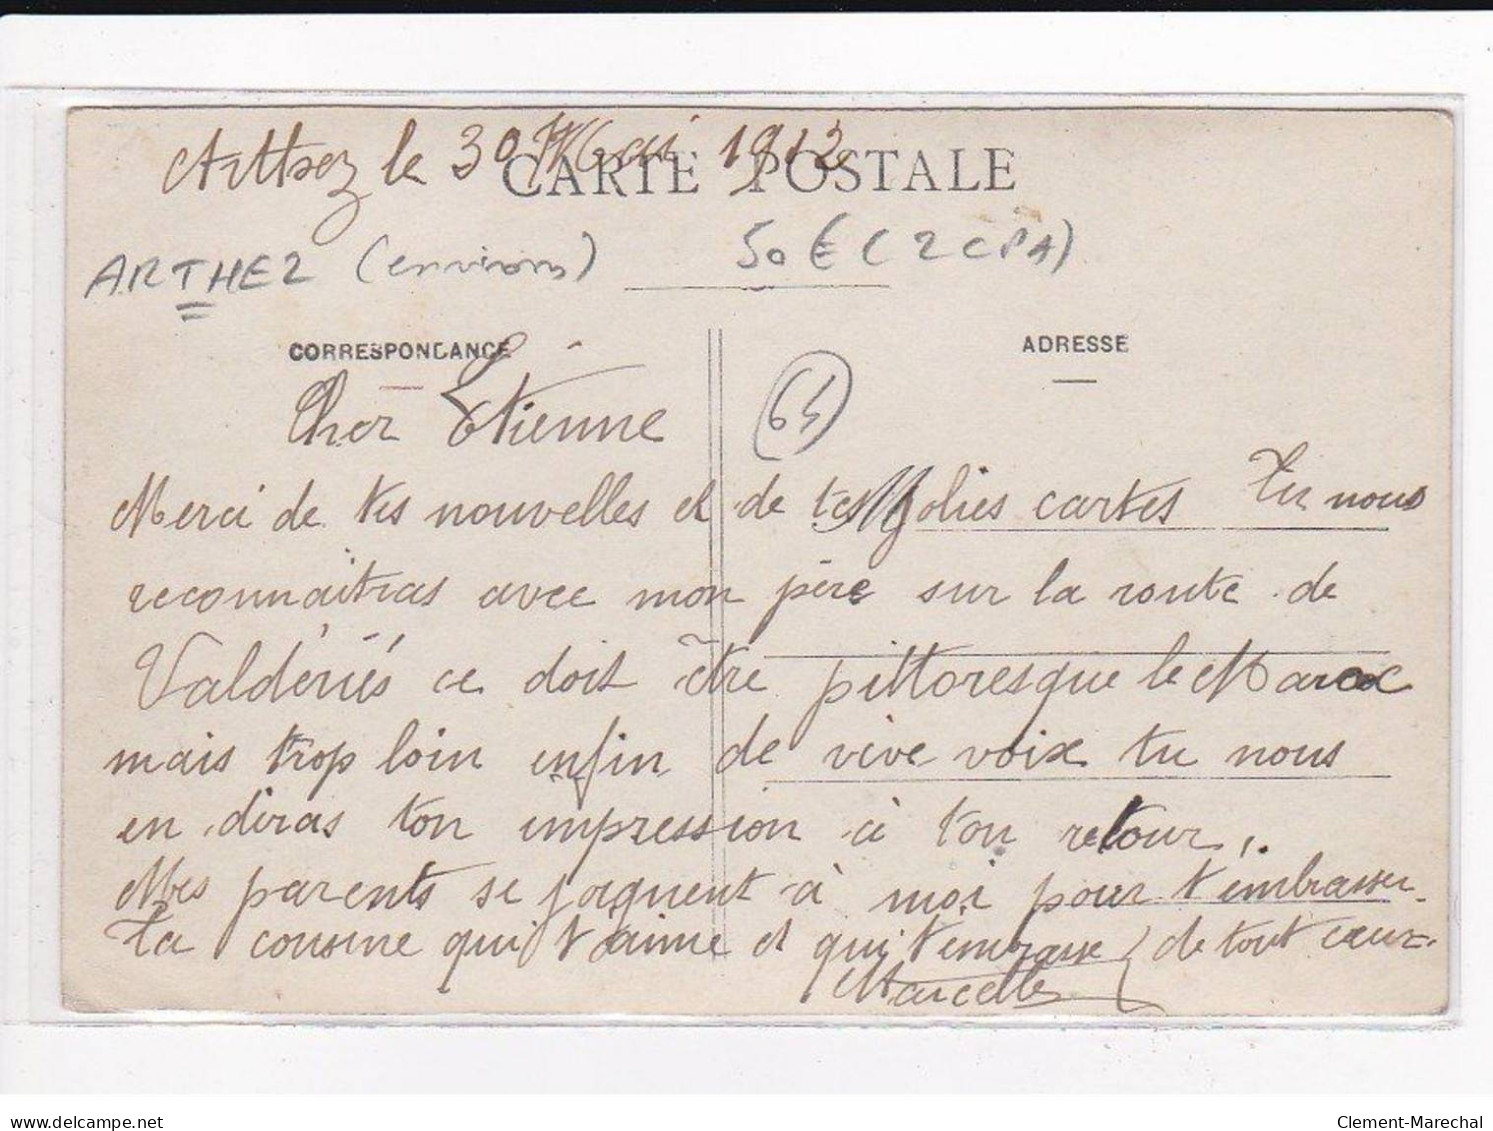 Arthez le 30 Mai 1912
CARTE POSTALE
ARTHEZ (environs)
50€ (2 CPA)
CORRESPONDANCE
ADRESSE
64
Cher Etienne
Merci de tes nouvelles et de tes jolies cartes Tu nous
reconnaitras avec mon père sur la route de
Valdériés ce doit être pittoresque le Maroc
mais trop loin enfin de vive voix tu nous
en diras ton impression à ton retour,.
Mes parents se joignent à moi pour t'embrasser.
Ta cousine qui t'aime et qui t'embrasse de tout cœur.
Marcelle
delcampe.net
Clement-Marechal